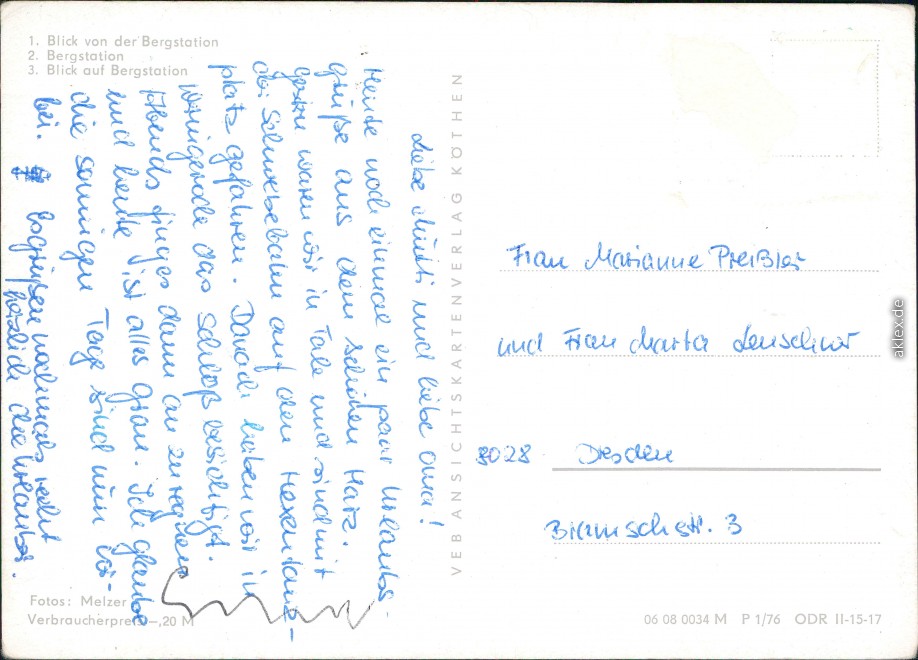 1. Blick von der Bergstation
2. Bergstation
3. Blick auf Bergstation
Liebe Mutti und liebe Oma!
Heute noch einmal ein paar Urlaubs-
grüße aus dem schönen Harz.
Gestern waren wir in Tale und sind mit
der Schwebebahn auf den Hexentanz-
platz gefahren. Danach haben wir in
Wernigerode das Schloß besichtigt.
Abends fing es dann an zu regnen
und heute ist alles grau. Ich glaube
die sonnigen Tage sind nun vor-
bei. Es grüßen nochmals recht
herzlich die Urlauber.
VEB ANSICHTSKARTENVERLAG KÖTHEN
Frau Marianne Preißler
und Frau Marta
8028 Dresden
Braunschstr. 3
Fotos: Melzer
Verbraucherpreis –,20 M
06 08 0034 M P 1/76 ODR II-15-17
aklex.de